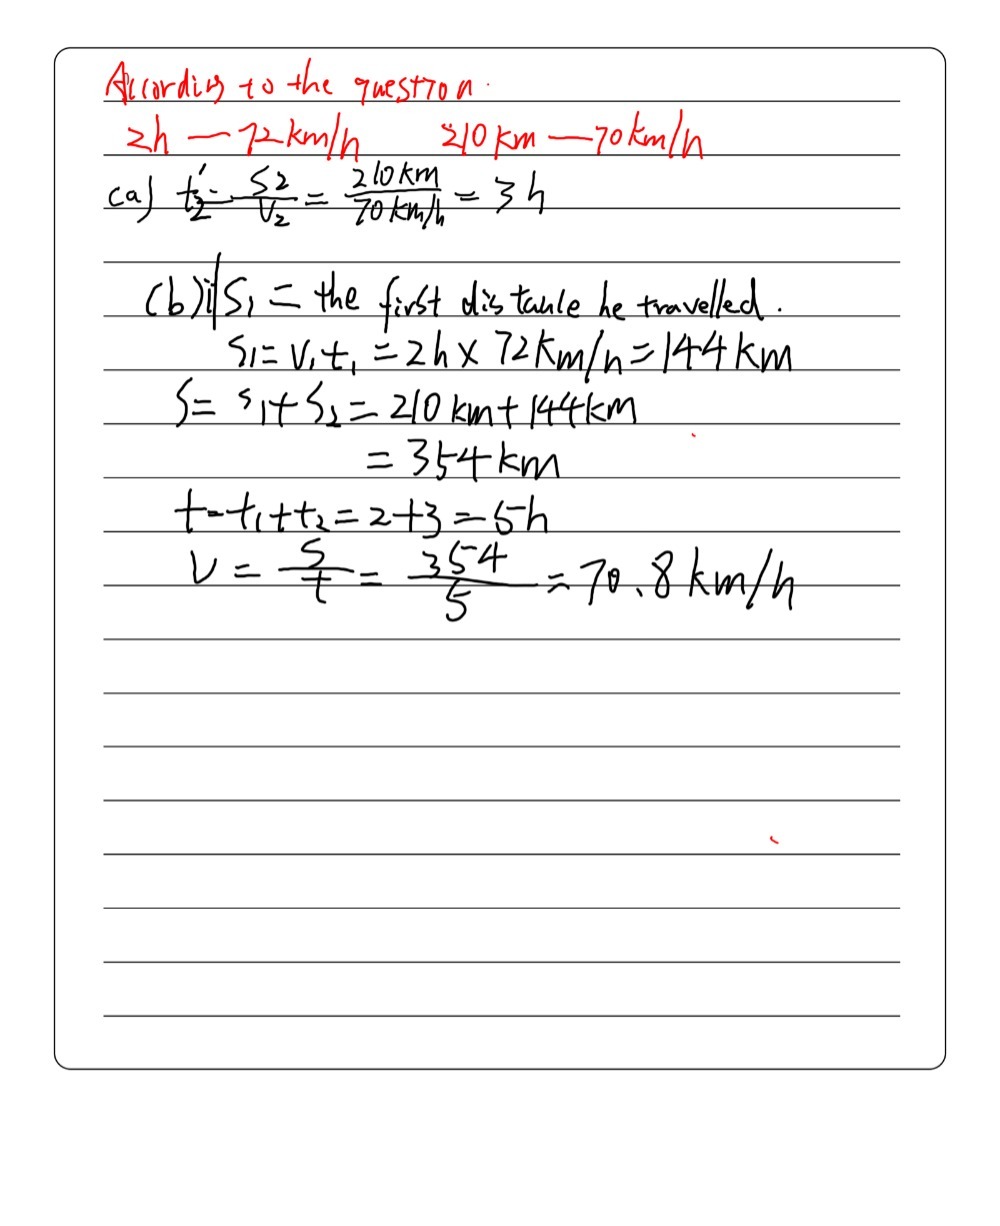 According to the question.
2h — 72km/h 210 km — 70 km/h
(a) t₂ = S2/V2 = 210 km/70 km/h = 3 h
(b) if S₁ = the first distance he travelled.
S₁ = V₁t₁ = 2h × 72 km/h = 144 km
S = S₁ + S₂ = 210 km + 144 km
= 354 km
t = t₁ + t₂ = 2+3 = 5h
V = S/t = 354/5 = 70.8 km/h